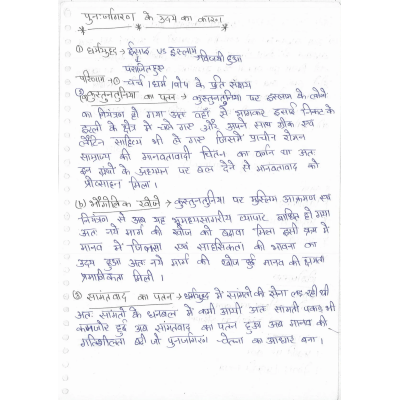 पुनःजागरण के उदय का कारण
① धर्मयुद्ध → ईसाई vs इस्लाम → विजयी हुआ
पराजित हुए
परिणाम → ① चर्च / धर्म / पोप के प्रति संशय
कुस्तुनतुनिया का पतन → कुस्तुनतुनिया पर इस्लाम के लोगों
का नियंत्रण हो गया अतः वहाँ से भागकर इसाई निकट के
इटली के क्षेत्र में चले गए और अपने साथ ग्रीक एवं
लैटिन साहित्य भी ले गए जिसमें प्राचीन रोमन
साम्राज्य की मानवतावादी चिंतन का वर्णन था अतः
इन ग्रंथों के अध्ययन पर बल देने से मानवतावाद को
प्रोत्साहन मिला।
(b) भौगोलिक खोजें → कुस्तुनतुनिया पर मुस्लिम आक्रमण एवं
नियंत्रण से अब यह भूमध्यसागरीय व्यापार बाधित हो गया
अतः नये मार्ग की खोज को बढ़ावा मिला इसी क्रम में
मानव में जिज्ञासा एवं साहसिकता की भावना का
उदय हुआ अतः नये मार्ग की खोज हुई मानव की क्षमता
प्रमाणिकता मिली।
③ सामंतवाद का पतन → धर्मयुद्ध में सामंतों की सेना लड़ रही थी
अतः सामंतों के धनबल में कमी आयी अतः सामंती पकड़ भी
कमजोर हुई अब सामंतवाद का पतन हुआ अब मानव की
गतिशीलता बढ़ी जो पुनर्जागरण - चेतना का आधार बना।